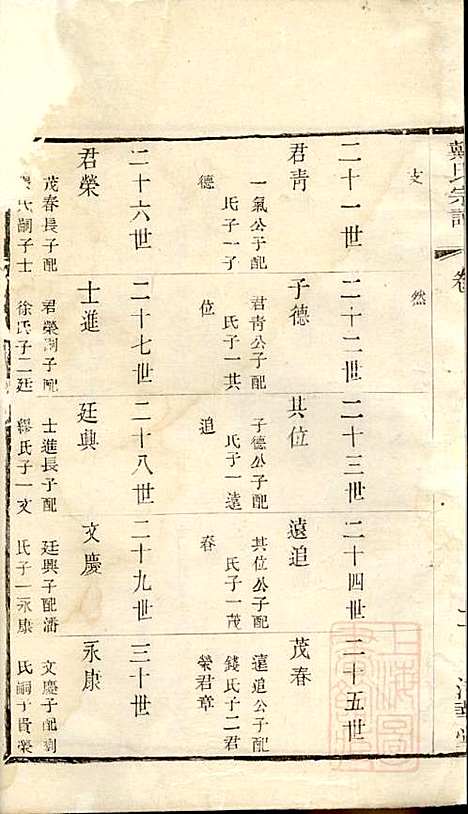 戴氏宗譜
卷
支
然
二十一世
君靑
一氣公子配
氏子一子
德
二十二世
子德
君靑公子配
氏子一其
位
二十三世
其位
子德公子配
氏子一遠
追
二十四世
遠追
其位公子配
氏子一茂
春
二十五世
茂春
遠追公子配
錢氏子二君
榮君章
二十六世
君榮
茂春長子配
氏嗣子士
二十七世
士進
君榮嗣子配
徐氏子二廷
二十八世
廷興
士進長子配
繆氏子一文
二十九世
文慶
廷興子配潘
氏子一永康
三十世
永康
文慶子配
氏嗣子貴榮
上海圖